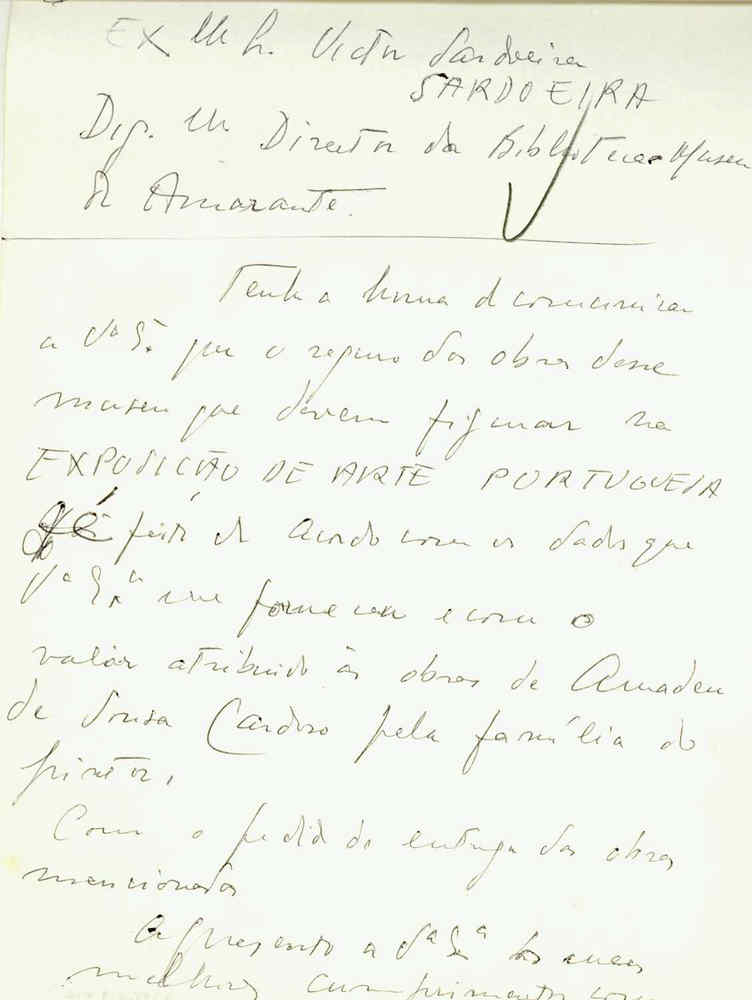 EX Mo Sr. Victor Sardoeira
SARDOEIRA
Dig. Mo Director da Biblioteca-Museu
de Amarante.
Tenho a honra de comunicar
a Vª Eª que o seguro das obras desse
museu que devem figurar na
EXPOSIÇÃO DE ARTE PORTUGUESA
é feito de acordo com os dados que
Vª Exª me forneceu e com o
valor atribuido às obras de Amadeu
de Sousa Cardoso pela família do
pintor.
Com o pedido de entrega das obras
mencionadas
Apresento a Vª Exª os meus
melhores cumprimentos com